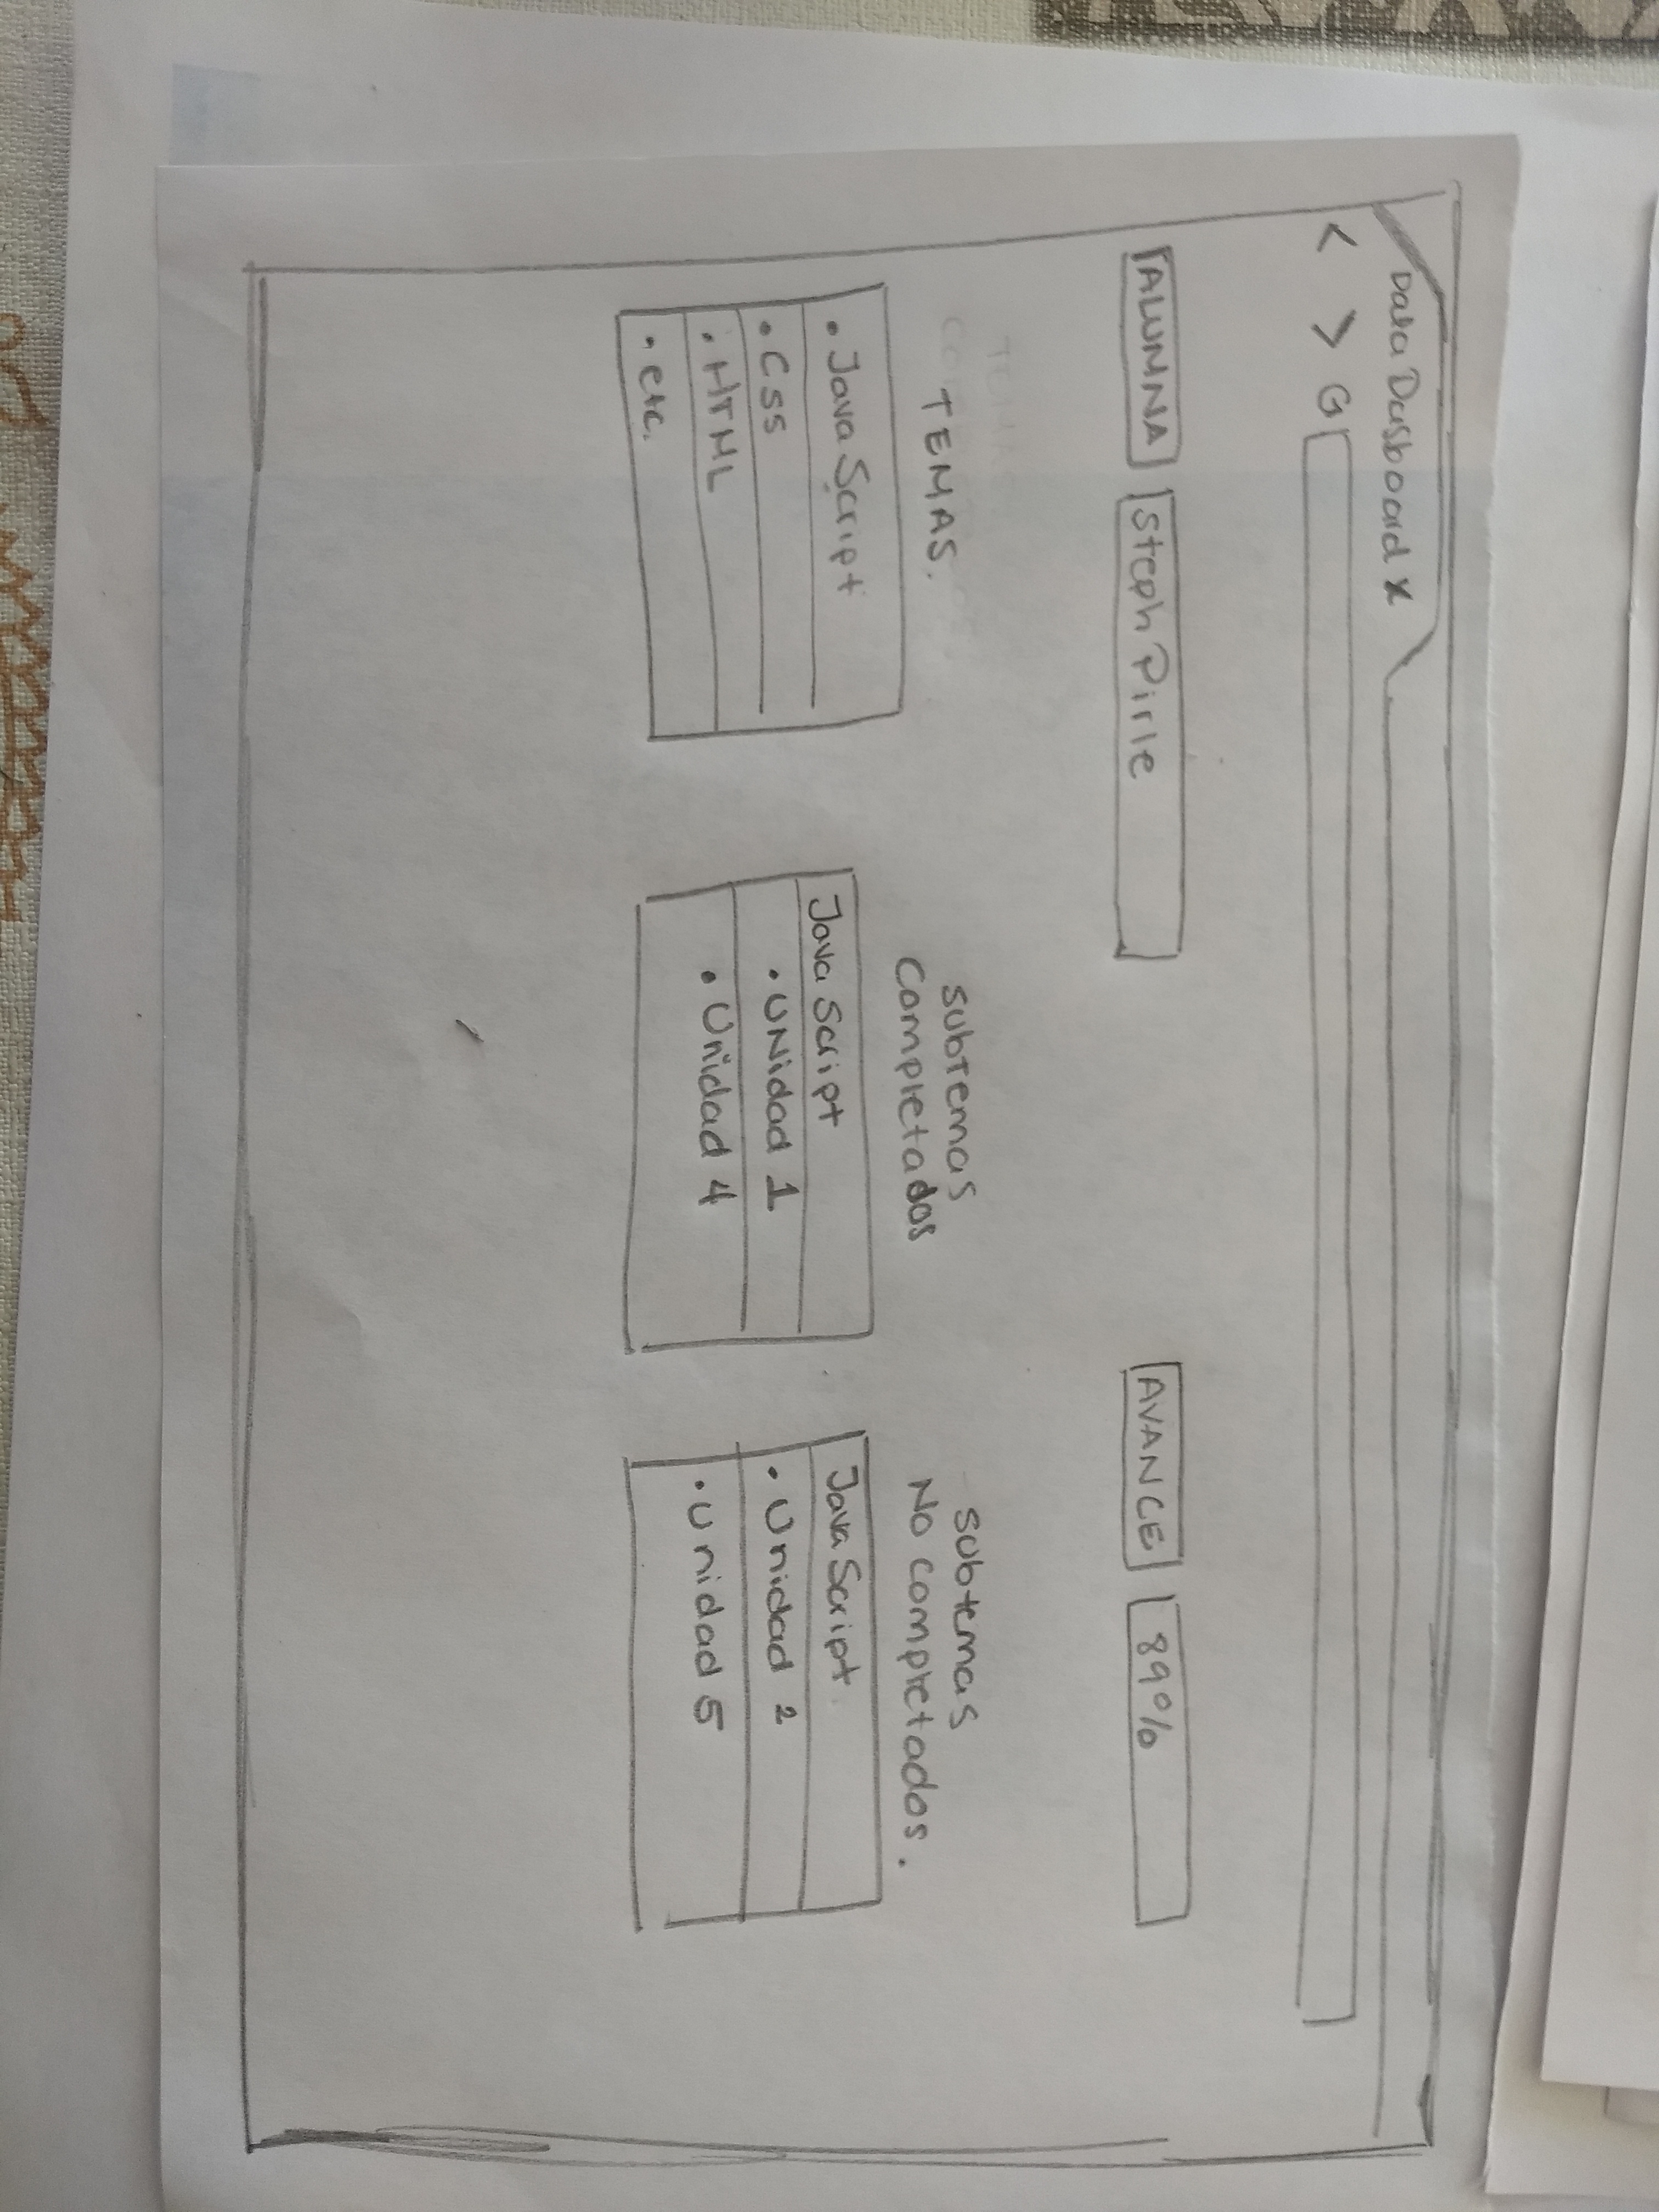 Data Dasboard x
< > G
ALUMNA Steph Pirle AVANCE 89%
TEMAS
TEMAS.
• Java Script
• Css
• HTML
• etc.
subtemas
Completados
Java Script
• UNidad 1
• Unidad 4
subtemas
No completados.
Java Script
• Unidad 2
• Unidad 5